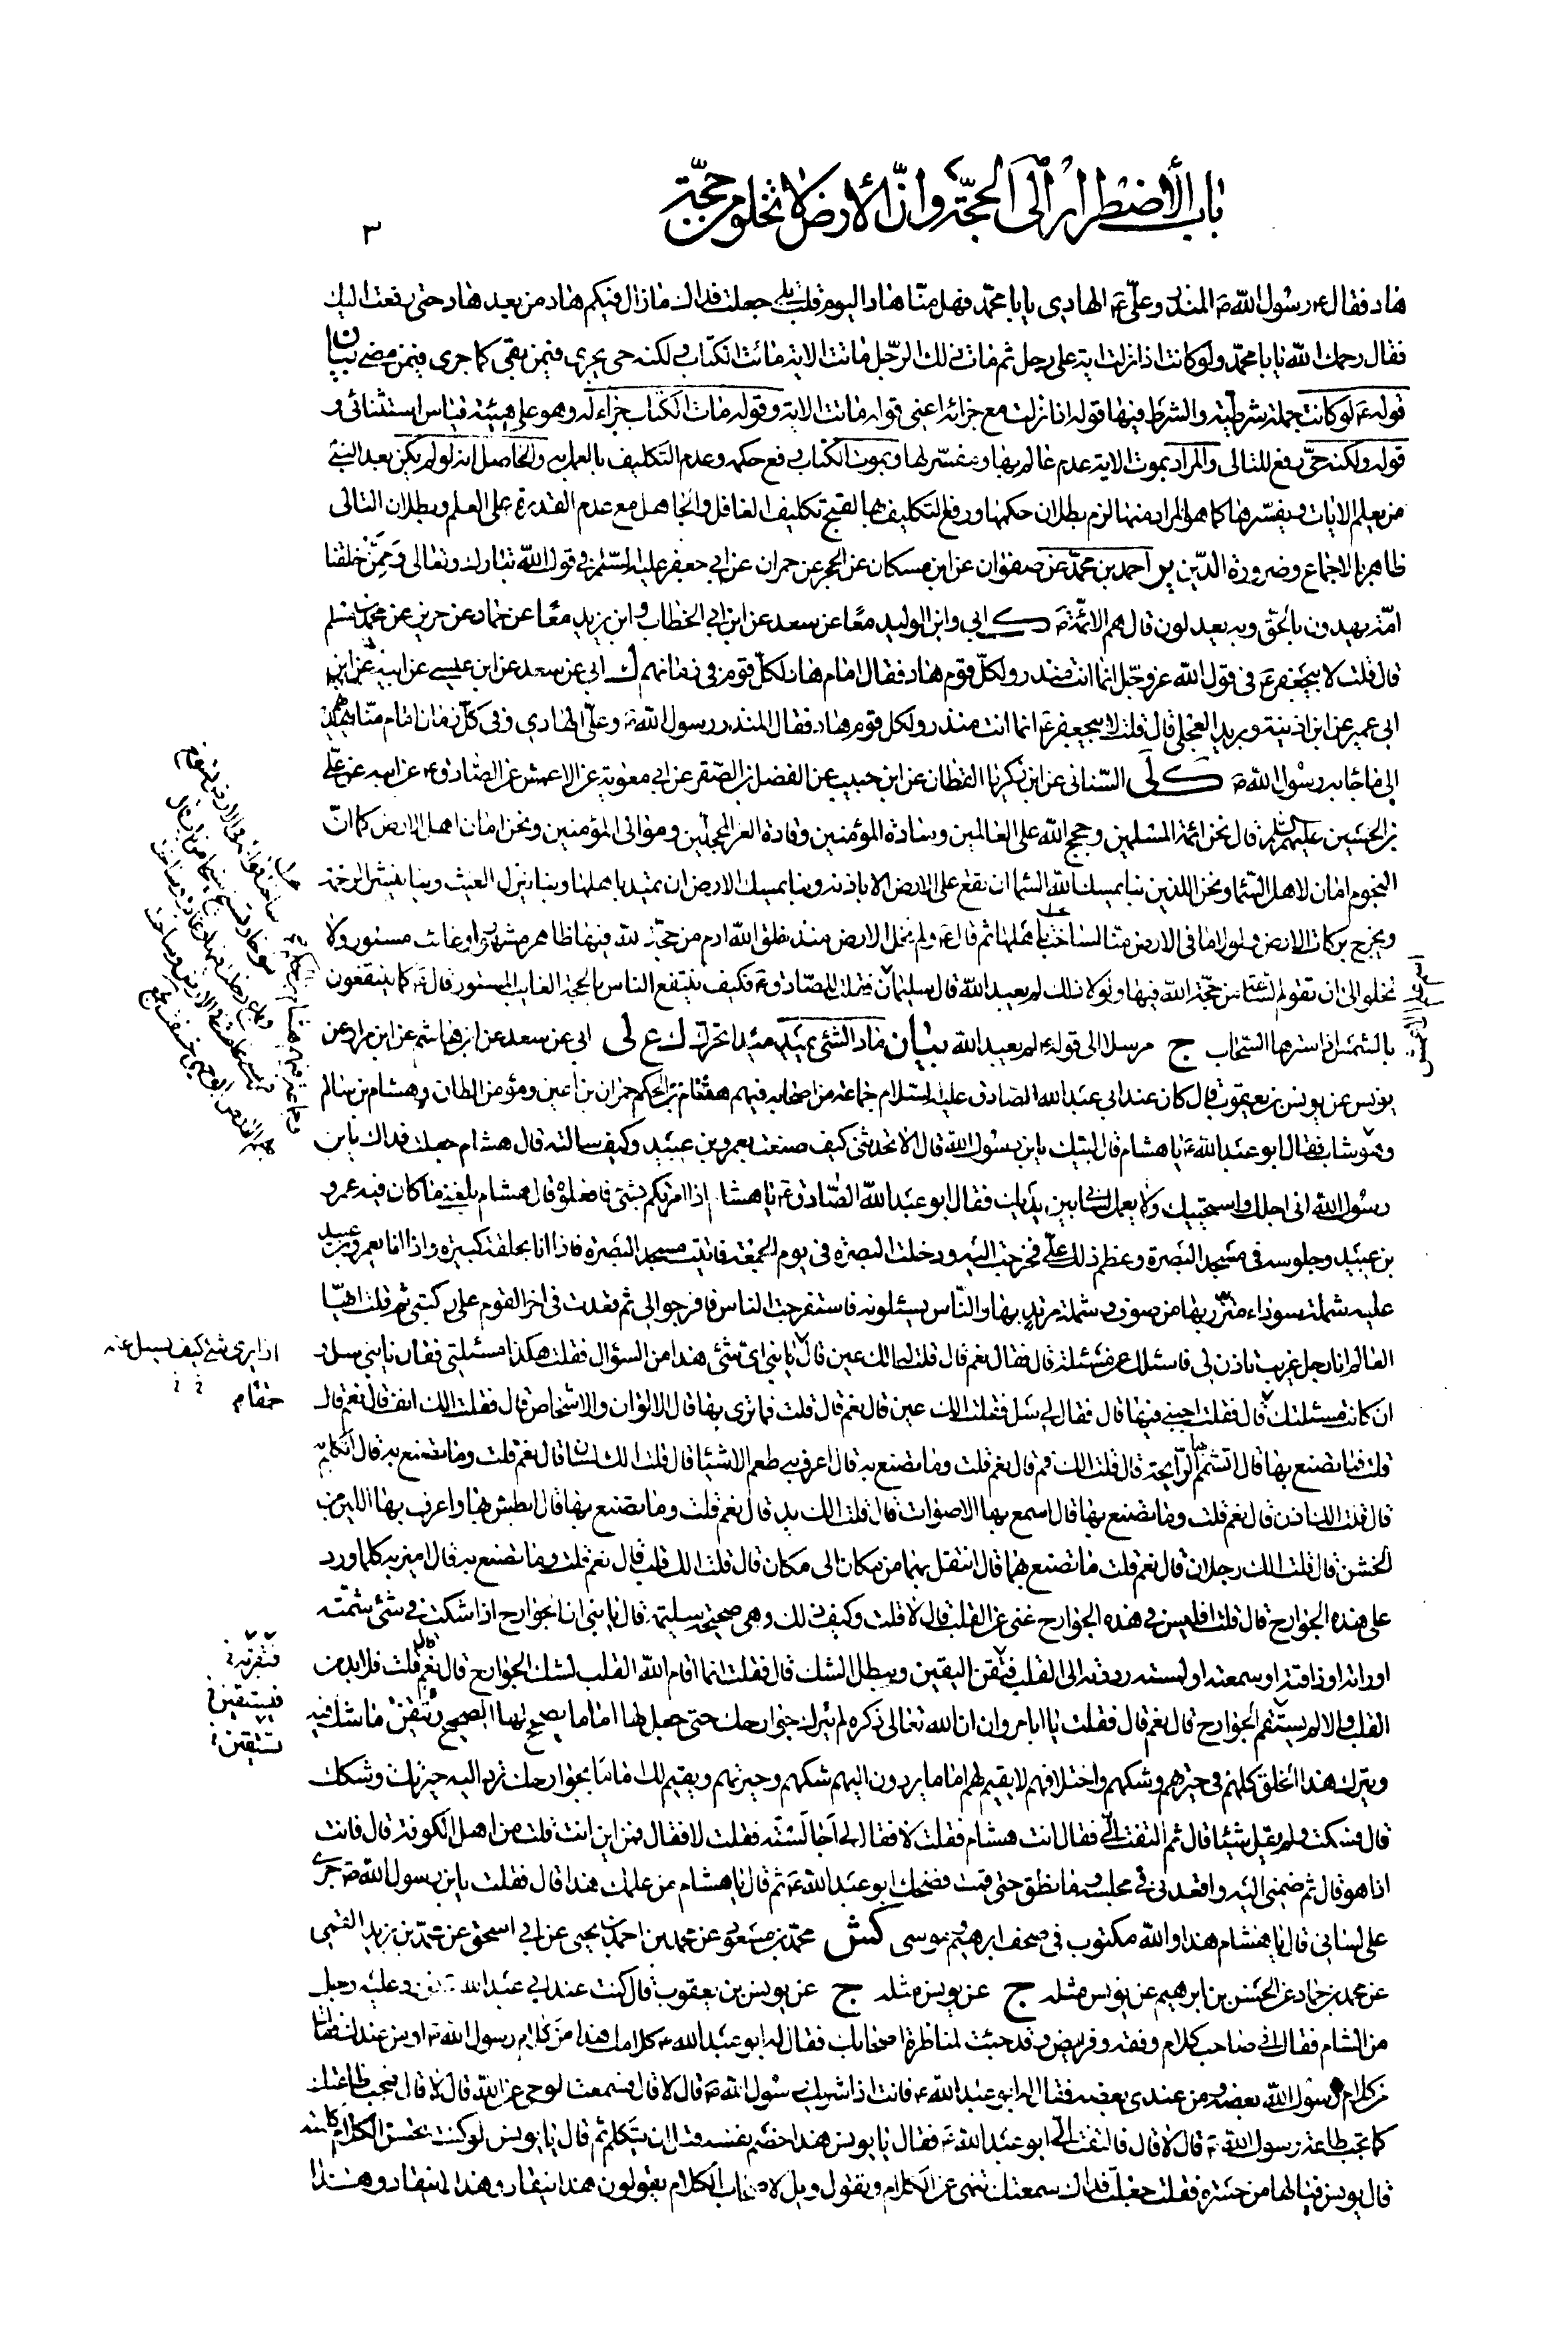 باب الأضطرار الى الحجّة وانّ الأرض لا تخلو من حجّة
٣
هاد فقال ع رسول الله ص المنذر وعلي ع الهادي يا با محمّد فهل منّا هاد اليوم قلت بلى جعلت فداك ما زال فيكم هاد من بعد هاد حتى رفعت اليك
فقال رحمك الله يا با محمّد ولو كانت اذا نزلت اية على رجل ثم مات ذلك الرجل ماتت الاية مات الكتاب ولكنه حي يجري فيمن بقي كما جرى فيمن مضى بيان
قوله ع لو كانت جملة شرطية والشرط فيها قوله اذا نزلت مع جزائه اعني قوله ماتت الاية وقوله مات الكتاب جزاء له وهو على هيئة قياس استثنائي و
قوله ولكنه حيّ رفع للتالي والمراد بموت الاية عدم عالم بها ومفسّر لها وبموت الكتاب رفع حكمه وعدم التكليف بالعمل به والحاصل انه لو لم يكن بعد النبي
من يعلم الايات ويفسّرها كما هو المراد منها لزم بطلان حكمها ورفع التكليف بها لقبح تكليف الغافل والجاهل مع عدم القدرة على العلم وبطلان التالي
ظاهر بالاجماع وضرورة الدّين ير احمد بن محمّد عن صفوان عن ابن مسكان عن الحجر عن حمران عن ابي جعفر عليه السّلم في قول الله تبارك وتعالى وممّن خلقنا
امّة يهدون بالحقّ وبه يعدلون قال هم الائمّة ص ك ابي وابن الوليد معًا عن سعد عن ابن ابي الخطاب و ابن يزيد معًا عن حماد عن حريز عن محمد بن مسلم
قال قلت لابيجعفر ع في قول الله عز وجّل انما انت منذر ولكلّ قوم هاد فقال امام هاد لكلّ قوم في زمانهم ك ابي عن سعد عن ابن عيسى عن ابيه عن ابن
ابي عمير عن ابن اذينة وبريد العجلي قال قلت لابيجعفر ع انما انت منذر ولكل قوم هاد فقال المنذر رسول الله ص وعلي الهادي وفي كلّ زمان امام منّا يهديهم
الى ما جاء به رسول الله ص ك لي السّناني عن ابن زكريا القطان عن ابن حبيب عن الفضل بن الصّقر عن ابي معوية عن الاعمش عن الصّادق ع عن ابيه عن علي
بن الحسين عليهم السّلم قال نحن ائمة المسلمين وحجج الله على العالمين وسادة المؤمنين وقادة الغر المحجلين وموالي المؤمنين ونحن امان اهل الارض كما انّ
النجوم امان لاهل السّماء ونحن الذين بنا يمسك الله السّماء ان تقع على الارض الا باذنه وبنا يمسك الارض ان تميد باهلها وبنا ينزل الغيث وبنا ينشر الرحمة
ويخرج بركات الارض ولولا ما في الارض منّا لساخت باهلها ثم قال ع ولم تخل الارض منذ خلق الله ادم من حجّة لله فيها ظاهر مشهور او غائب مستور ولا
تخلو الى ان تقوم السّاعة من حجّة الله فيها ولولا ذلك لم يعبد الله قال سليمان فقلت للصّادق ع فكيف ينتفع الناس بالحجّة الغايب المستور قال ع كما ينتفعون
بالشمس اذا سترها السّحاب ج مرسلا الى قوله لم يعبد الله بيان ماد الشّئ يميد ميدا تحرّك ك ع لي ابي عن سعد عن ابن هاشم عن ابن مراد عن
يونس عن يونس بن يعقوب قال كان عند ابي عبد الله الصّادق عليه السّلام جماعة من اصحابه فيهم هشام بن الحكم حمران بن اعين ومؤمن الطاق وهشام بن سالم
وهو شاب فقال ابو عبد الله ع يا هشام قال لبّيك يا ابن رسول الله قال الا تحدثني كيف صنعت بعمرو بن عبيد وكيف سألته قال هشام جعلت فداك يا بن
رسول الله اني اجلك واستحييك ولا يعمل لساني بين يديك فقال ابو عبد الله الصّادق ع يا هشام اذا امرتكم بشئ فافعلوه قال هشام بلغني ما كان فيه عمرو
بن عبيد وجلوسه في مسجد البصرة وعظم ذلك عليّ فخرجت اليه ودخلت البصرة في يوم الجمعة فاتيت مسجد البصرة فاذا انا بحلقة كبيرة واذا انا بعمرو بن عبيد
عليه شملة سوداء متزر بها من صوف وشملة مرتد بها والنّاس يسئلونه فاستفرجت الناس فافرجوا لي ثم قعدت في اخر القوم على ركبتي ثم قلت ايها
العالم انا رجل غريب تاذن لي فاسئلك عن مسئلة قال فقال نعم قال قلت له الك عين قال يا بني اي شئ هذا من السؤال فقلت هكذا مسئلتي فقال يا بني سل و
ان كانت مسئلتك قال فقلت اجبني فيها قال فقال لي سل فقلت الك عين قال نعم قال قلت فما ترى بها قال الالوان والاشخاص قال فقلت الك انف قال نعم قال
قلت فما تصنع بها قال اتشمم بها الرّايحة قال قلت الك فم قال نعم قلت وما تصنع به قال اعرف به طعم الاشياء قال قلت الك لسان قال نعم قلت وما تصنع به قال اتكلم به
قال قلت الك اذن قال نعم قلت وما تصنع بها قال اسمع بها الاصوات قال قلت الك يد قال نعم قلت وما تصنع بها قال ابطش بها واعرف بها اللين من
الخشن قال قلت الك رجلان قال نعم قلت ما تصنع بهما قال انتقل بهما من مكان الى مكان قال قلت الك قلب قال نعم قلت وما تصنع به قال اميز به كلما ورد
على هذه الجوارح قال قلت افليس في هذه الجوارح غنى عن القلب قال لا قلت وكيف ذلك وهي صحيحة سليمة قال يا بني ان الجوارح اذا شكت في شئ شمّته
او راته او ذاقته او سمعته او لمسته ردّته الى القلب فتيقن اليقين ويبطل الشك قال فقلت انما اقام الله القلب لشك الجوارح قال نعم قال قلت فلا بد من
القلب والا لم يستقم الجوارح قال نعم قال فقلت يا ابا مروان ان الله تعالى ذكره لم يترك جوارحك حتى جعل لها اماما يصحح لها الصحيح وتيقن ما شك فيه
ويترك هذا الخلق كلهم في حيرتهم وشكهم واختلافهم لا يقيم لهم اماما يردون اليهم شكهم وحيرتهم ويقيم لك اماما لجوارحك ترد اليه حيرتك وشكك
قال فسكت ولم يقل شيئا قال ثم التفت اليّ فقال انت هشام فقلت لا فقال لي اجالسته فقلت لا فقال فمن اين انت قلت من اهل الكوفة قال فانت
اذا هو قال ثم ضمني اليه واقعدني في مجلسه وما نطق حتى قمت فضحك ابو عبد الله ع ثم قال يا هشام من علمك هذا قال فقلت يا بن رسول الله ص جرى
على لساني قال يا هشام هذا والله مكتوب في صحف ابرهيم وموسى كش محمّد بن مسعود عن محمد بن احمد بن يحيى عن ابي اسحق عن محمّد بن يزيد القمي
عن محمد بن حماد عن الحسن بن ابرهيم عن يونس مثله ج عن يونس مثله ج عن يونس بن يعقوب قال كنت عند ابي عبد الله ورد عليه رجل
من الشام فقال اني صاحب كلام وفقه وفرايض وقد جئت لمناظرة اصحابك فقال له ابو عبد الله ع كلامك هذا من كلام رسول الله ص او من عندك فقال
من كلام رسول الله بعضه ومن عندي بعضه فقال له ابو عبد الله ع فانت اذا شريك رسول الله ص قال لا قال فسمعت الوحي عن الله قال لا قال فتجب طاعتك
كما تجب طاعة رسول الله ص قال لا قال فالتفت اليّ ابو عبد الله ع فقال يا يونس هذا خصم نفسه قبل ان يتكلم ثم قال يا يونس لو كنت تحسن الكلام كلمته
قال يونس فيا لها من حسرة فقلت جعلت فداك سمعتك تنهى عن الكلام وتقول ويل لاصحاب الكلام يقولون هذا ينقاد وهذا لا ينقاد وهذا
اذا ترى شئ كيف تسئل عنه
حمقاء
فيستيقن
تستيقن